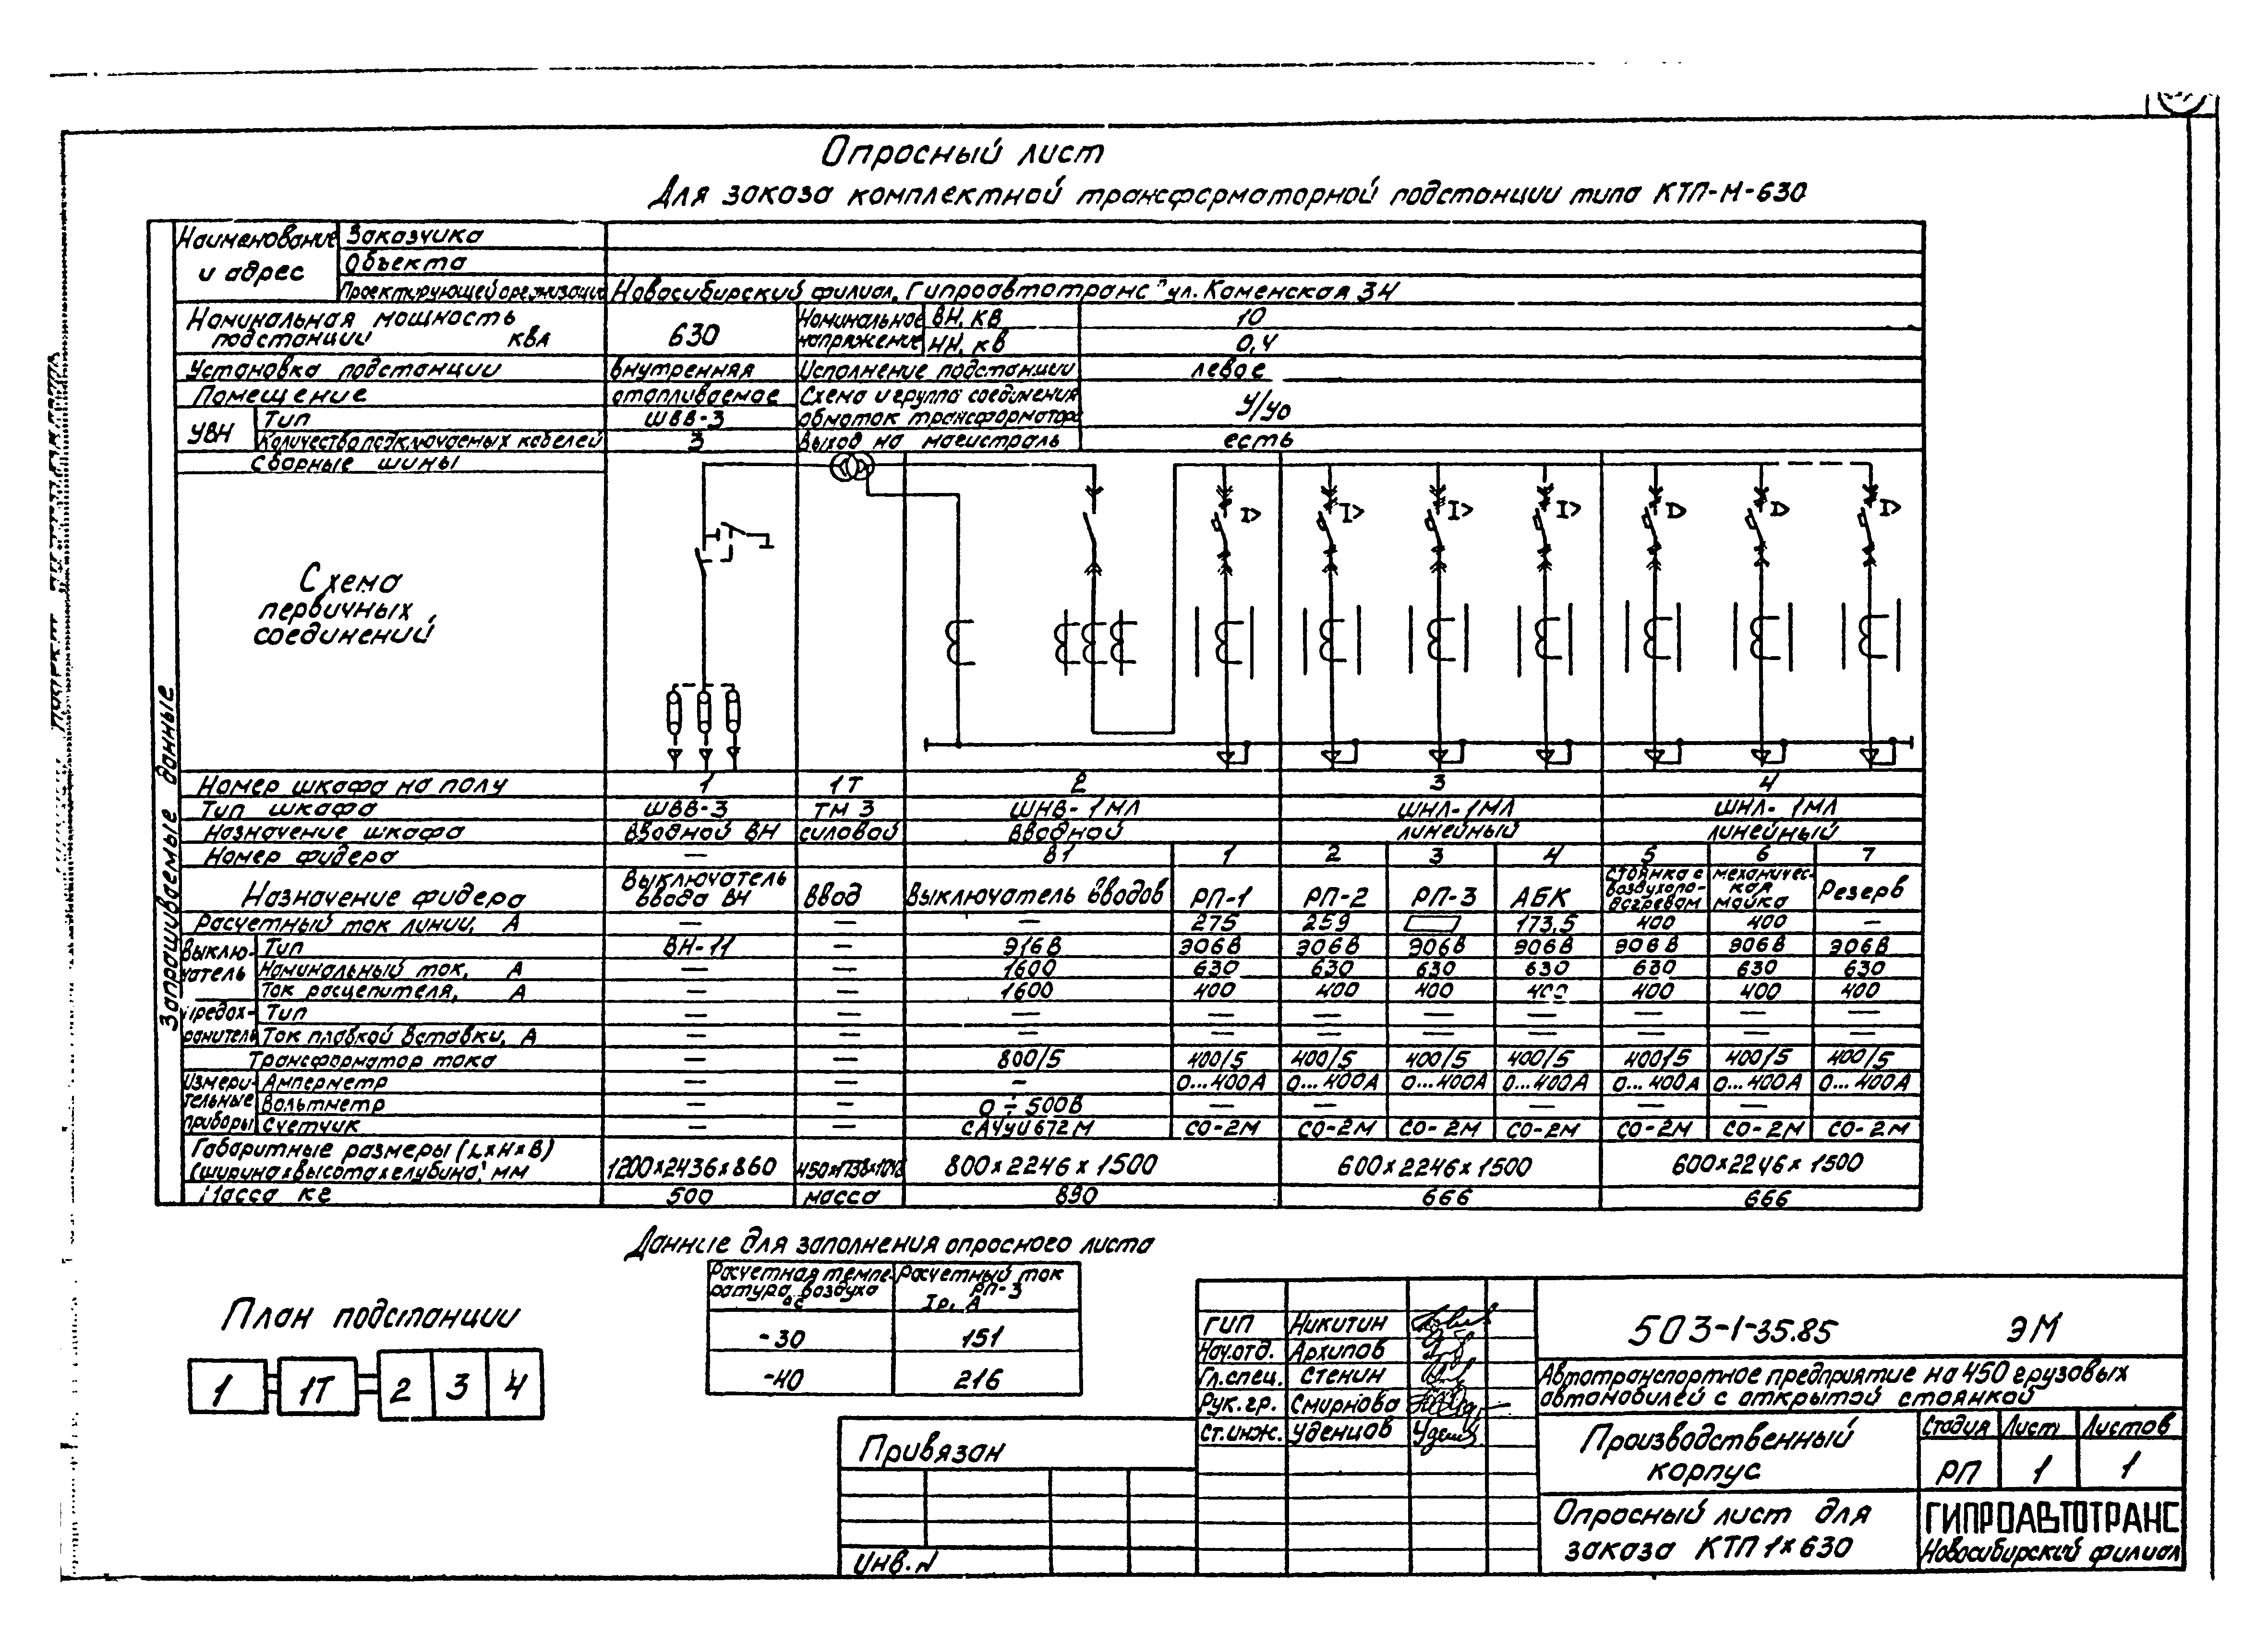 Опросный лист
Для заказа комплектной трансформаторной подстанции типа КТП-М-630
Запрашиваемые данные
Наименование и адрес
Заказчика
Объекта
Проектирующей организации Новосибирский филиал „Гипроавтотранс" ул. Каменская 34
Номинальная мощность подстанции кВА 630
Номинальное напряжение ВН, кВ 10
НН, кВ 0,4
Установка подстанции внутренняя Исполнение подстанции левое
Помещение отапливаемое Схема и группа соединения обмоток трансформатора У/Уо
УВН Тип ШВВ-3
Количество подключаемых кабелей 3 Выход на магистраль есть
Сборные шины
Схема
первичных
соединений
I> I> I> I> I> I> I>
Номер шкафа на полу 1 1Т 2 3 4
Тип шкафа ШВВ-3 ТМЗ ШНВ-1МЛ ШНЛ-1МЛ ШНЛ-1МЛ
Назначение шкафа вводной ВН силовой вводной линейный линейный
Номер фидера — В1 1 2 3 4 5 6 7
Назначение фидера Выключатель ввода ВН Ввод Выключатель вводов РП-1 РП-2 РП-3 АБК стоянка с воздухоподогревом механическая мойка Резерв
Расчетный ток линии, А — — — 275 259 173,5 400 400 —
Выключатель Тип ВН-11 — Э16В Э06В Э06В Э06В Э06В Э06В Э06В Э06В
Номинальный ток, А — — 1600 630 630 630 630 630 630 630
Ток расцепителя, А — — 1600 400 400 400 400 400 400 400
Предохранитель Тип — — — — — — — — — —
Ток плавкой вставки, А — — — — — — — — — —
Трансформатор тока — — 800/5 400/5 400/5 400/5 400/5 400/5 400/5 400/5
Измерительные приборы Амперметр — — - 0...400А 0...400А 0...400А 0...400А 0...400А 0...400А 0...400А
Вольтметр — — 0÷500В — — — — —
Счетчик — — СА4У И672М СО-2М СО-2М СО-2М СО-2М СО-2М СО-2М СО-2М
Габаритные размеры (L×H×B)
(ширина×высота×глубина), мм 1200×2436×860 800×2246×1500 600×2246×1500 600×2246×1500
Масса кг 500 масса 890 666 666
Данные для заполнения опросного листа
Расчетная температура воздуха °С Расчетный ток РП-3 Iр, А
-30 151
-40 216
План подстанции
1 1Т 2 3 4
Привязан
Инв. N
ГИП Никитин
Нач.отд. Архипов
Гл.спец. Стенин
Рук.гр. Смирнова
Ст.инж. Уденцов
503-1-35.85 ЭМ
Автотранспортное предприятие на 450 грузовых
автомобилей с открытой стоянкой
Производственный
корпус
Стадия Лист Листов
РП 1 1
Опросный лист для
заказа КТП 1×630
ГИПРОАВТОТРАНС
Новосибирский филиал